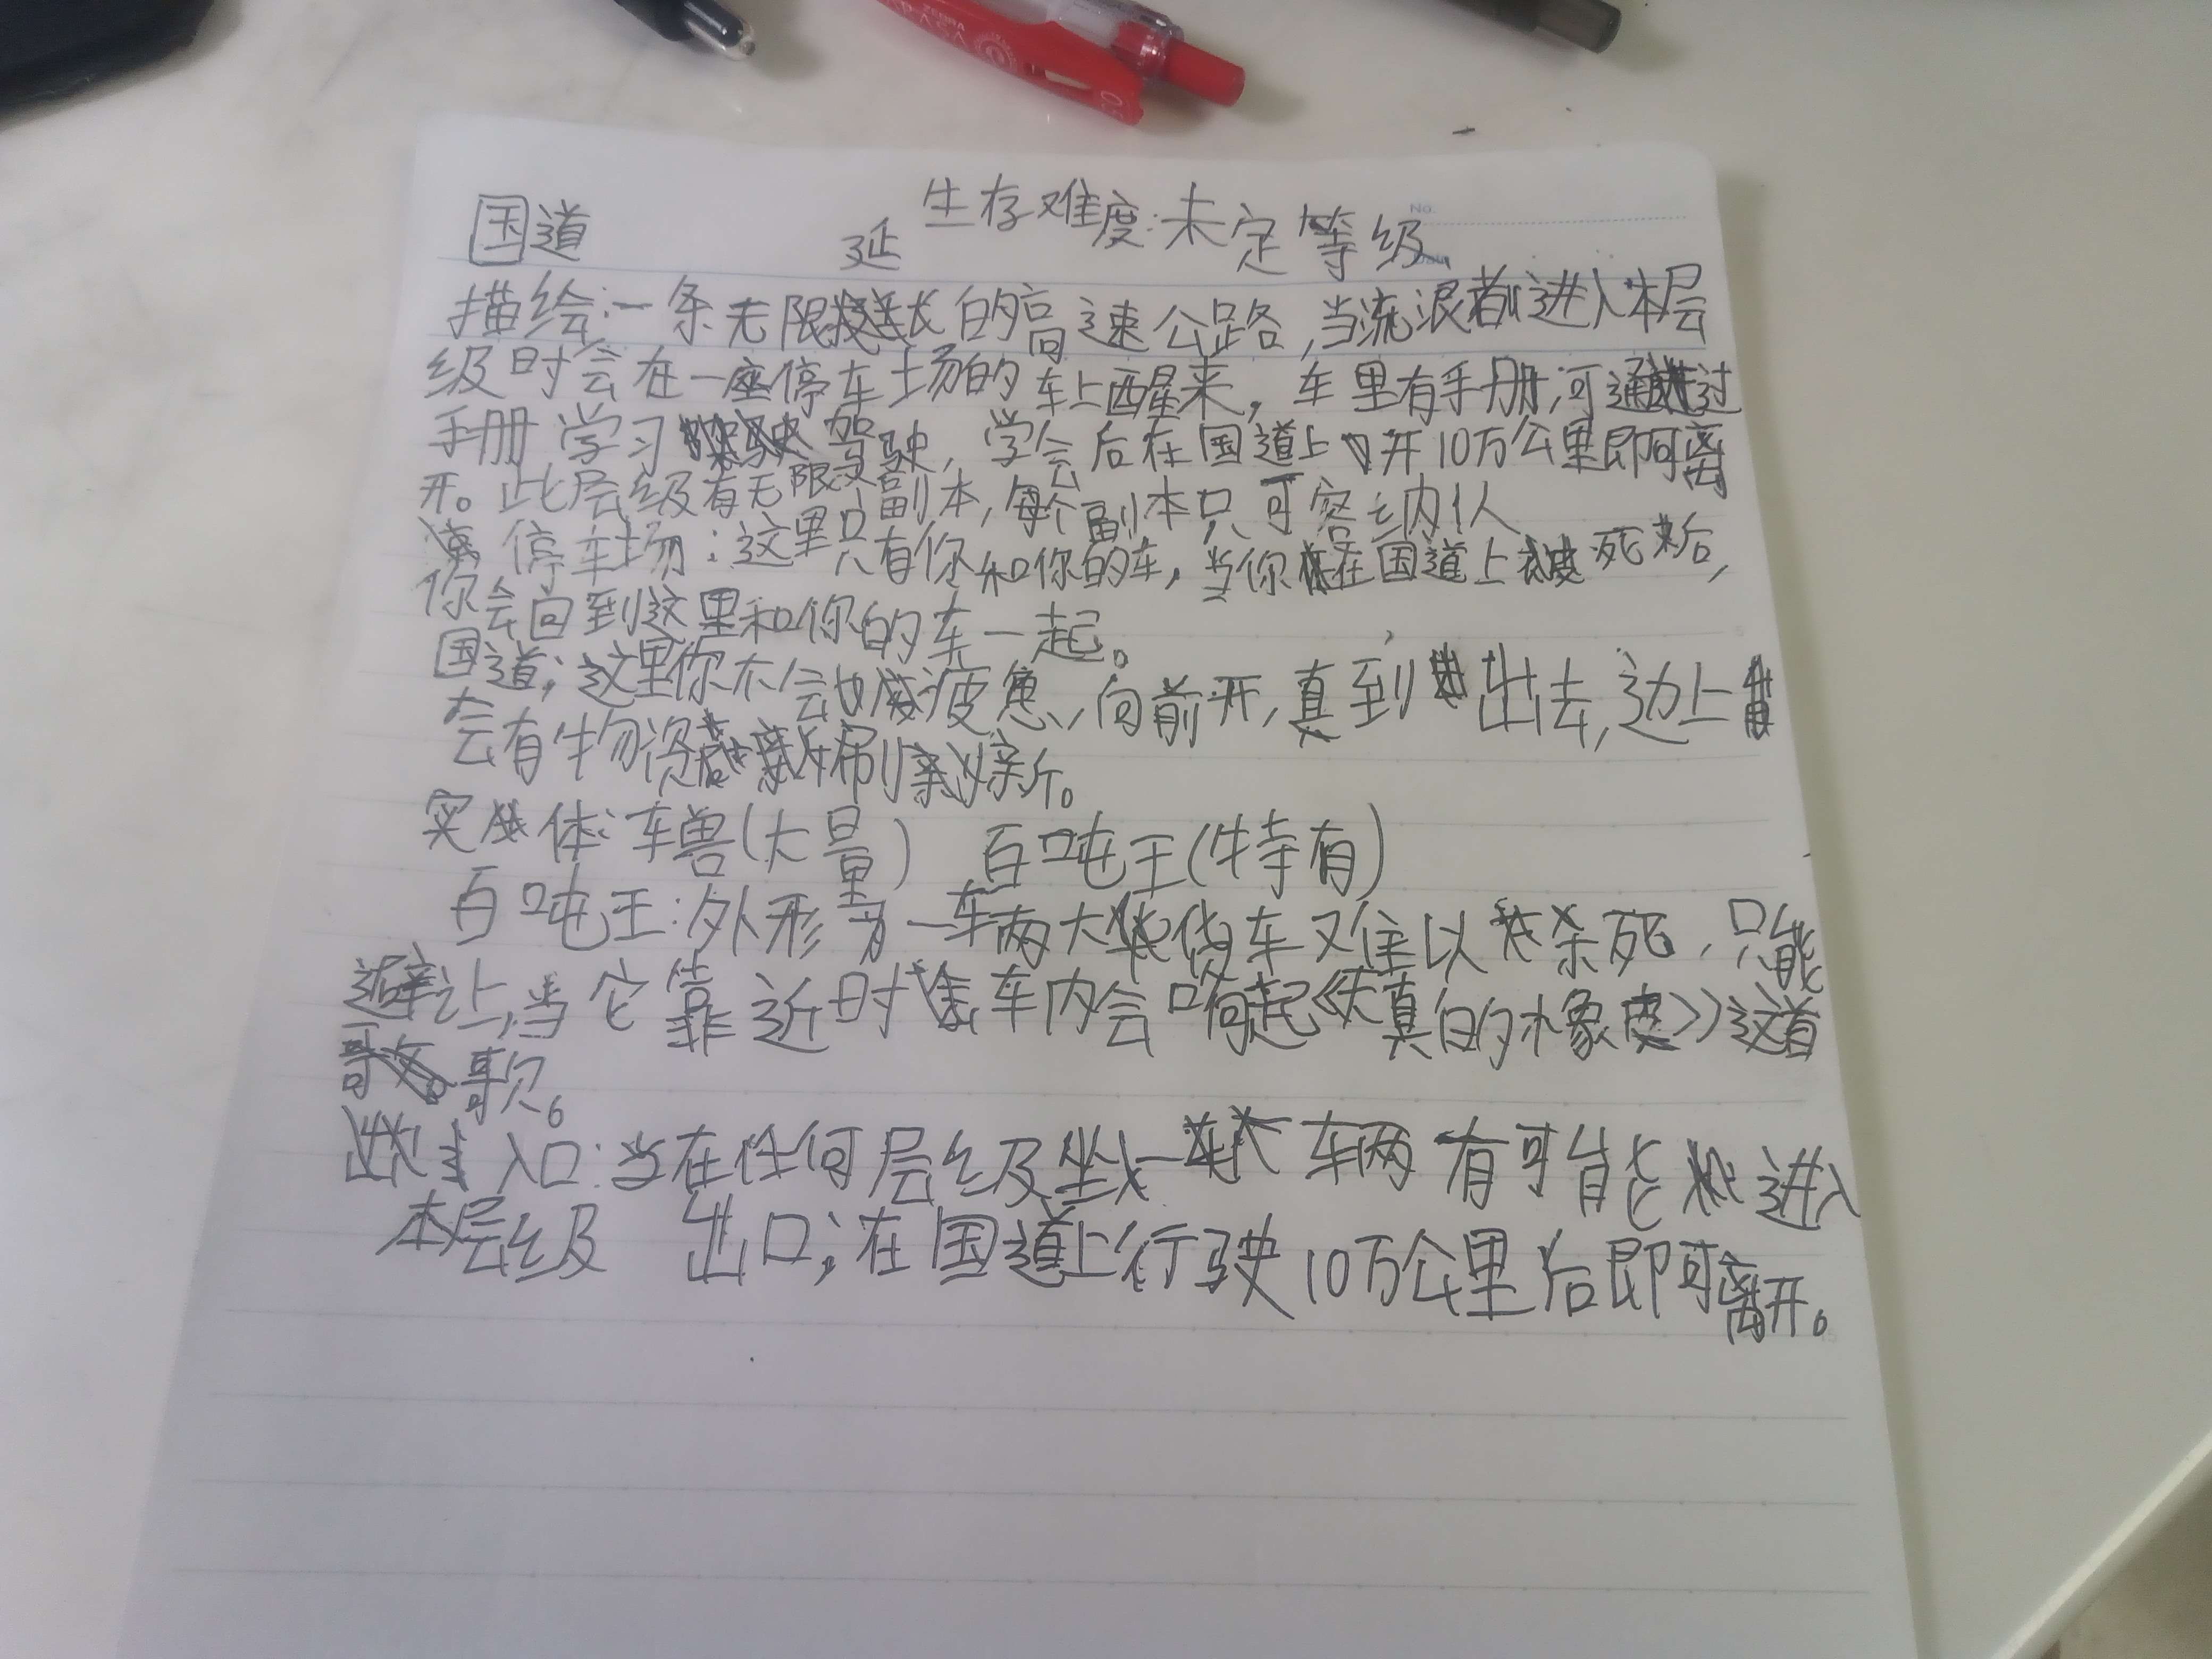 ZEBRA
国道 生存难度:未定等级
延
No.
描绘:一条无限长的高速公路,当流浪者进入本层
级时会在一座停车场的车上醒来,车里有手册,可通过
手册学习驾驶,学会后在国道上开10万公里即可离
开。此层级有无限副本,每个副本只可容纳1人
停车场:这里只有你和你的车,当你在国道上死后,
你会回到这里和你的车一起。
国道:这里你不会感疲惫,向前开,真到出去,边上
会有物资刷新。
实体:车兽(大量) 百吨王(特有)
百吨王:外形为一车两大货车难以杀死,只能
避让,当它靠近时车内会响起《天真的橡皮》这首
歌。
入口:当在任何层级坐一车两有可能进入
本层级 出口:在国道上行驶10万公里后即可离开。